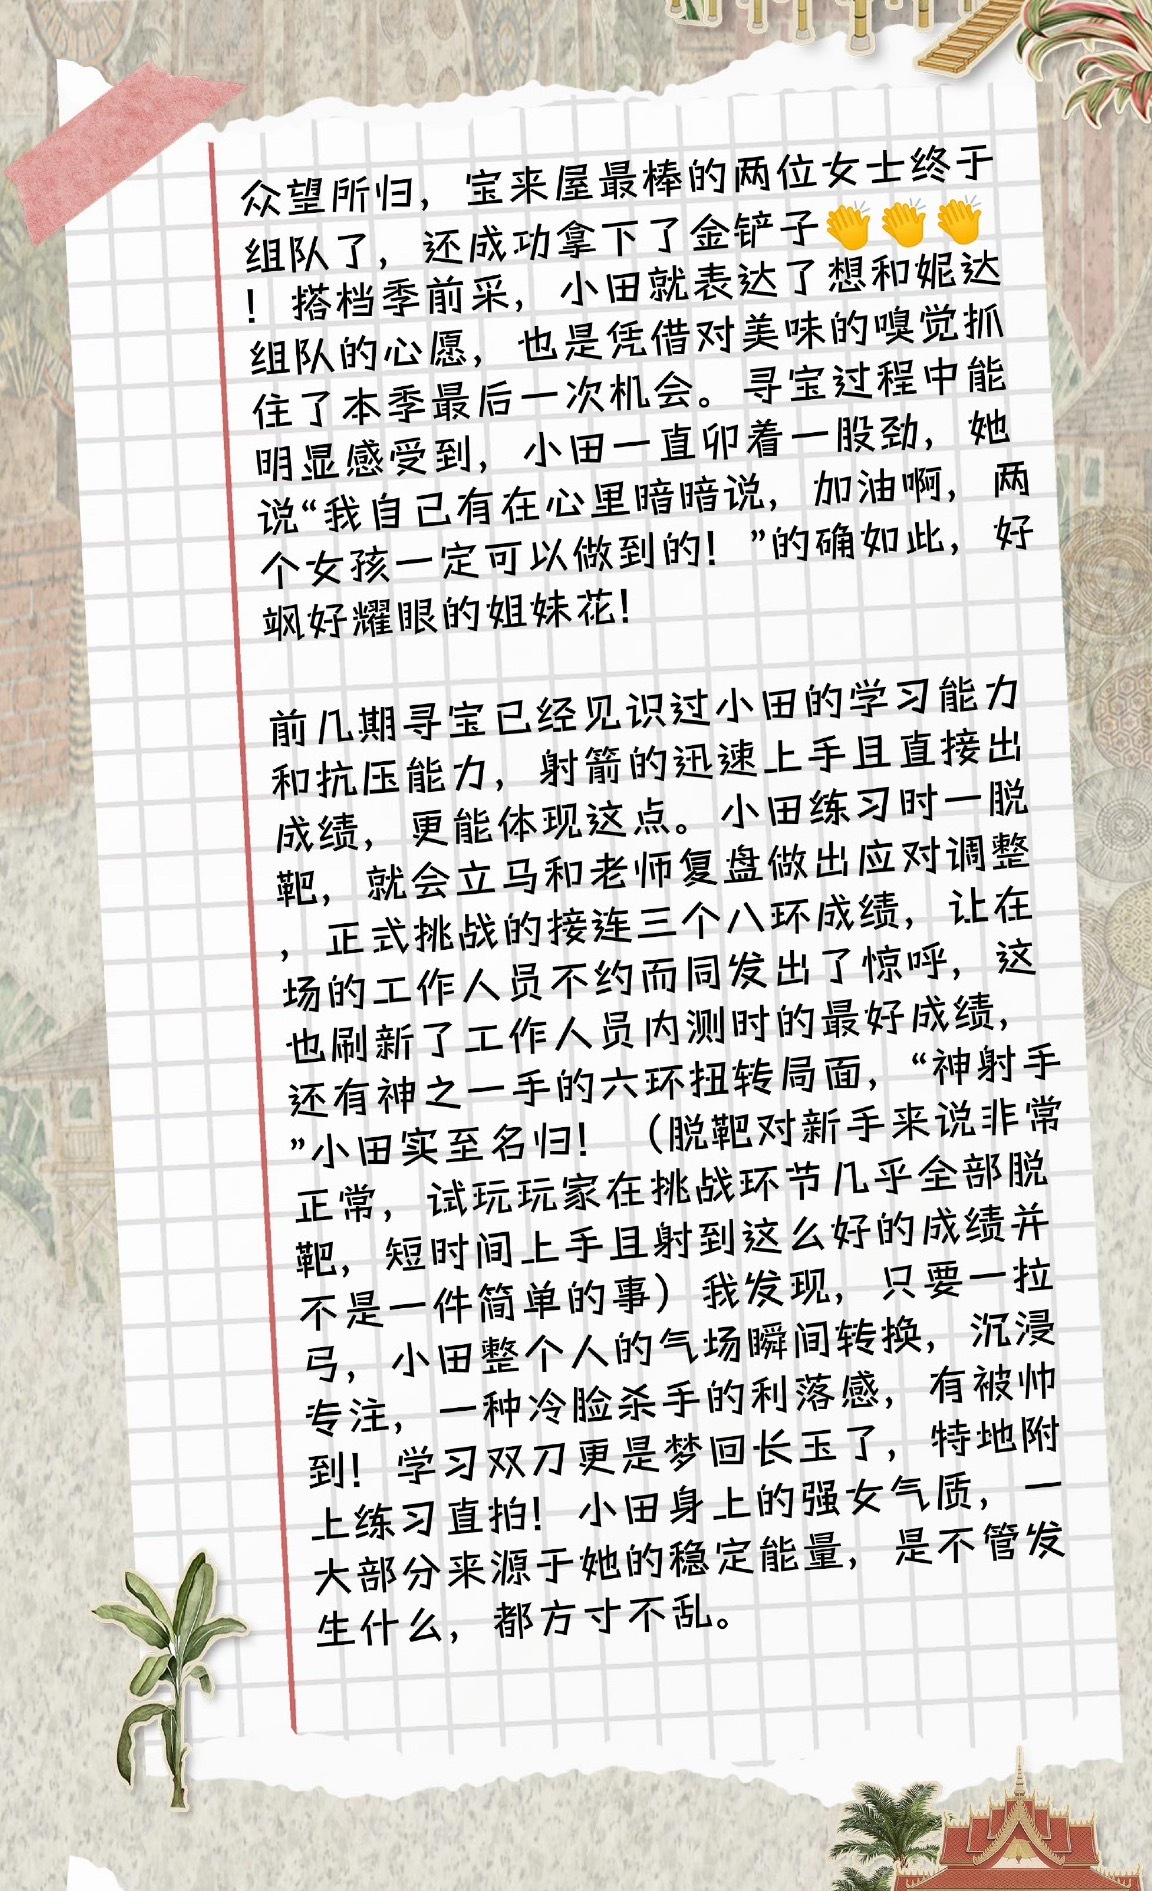 众望所归，宝来屋最棒的两位女士终于
组队了，还成功拿下了金铲子👏👏👏
！搭档季前采，小田就表达了想和妮达
组队的心愿，也是凭借对美味的嗅觉抓
住了本季最后一次机会。寻宝过程中能
明显感受到，小田一直卯着一股劲，她
说“我自己有在心里暗暗说，加油啊，两
个女孩一定可以做到的！”的确如此，好
飒好耀眼的姐妹花！
前几期寻宝已经见识过小田的学习能力
和抗压能力，射箭的迅速上手且直接出
成绩，更能体现这点。小田练习时一脱
靶，就会立马和老师复盘做出应对调整
，正式挑战的接连三个八环成绩，让在
场的工作人员不约而同发出了惊呼，这
也刷新了工作人员内测时的最好成绩，
还有神之一手的六环扭转局面，“神射手
”小田实至名归！（脱靶对新手来说非常
正常，试玩玩家在挑战环节几乎全部脱
靶，短时间上手且射到这么好的成绩并
不是一件简单的事）我发现，只要一拉
弓，小田整个人的气场瞬间转换，沉浸
专注，一种冷脸杀手的利落感，有被帅
到！学习双刀更是梦回长玉了，特地附
上练习直拍！小田身上的强女气质，一
大部分来源于她的稳定能量，是不管发
生什么，都方寸不乱。